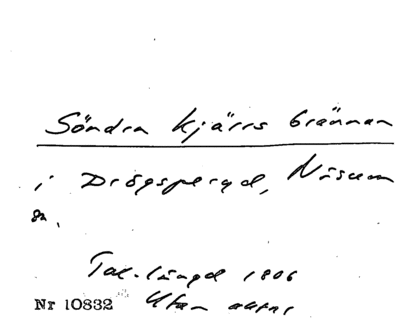 Söndra kjärrs brännan
i Drögsperyd, Näsum
sn.
Tax.längd 1806
Nr 10832 Utan